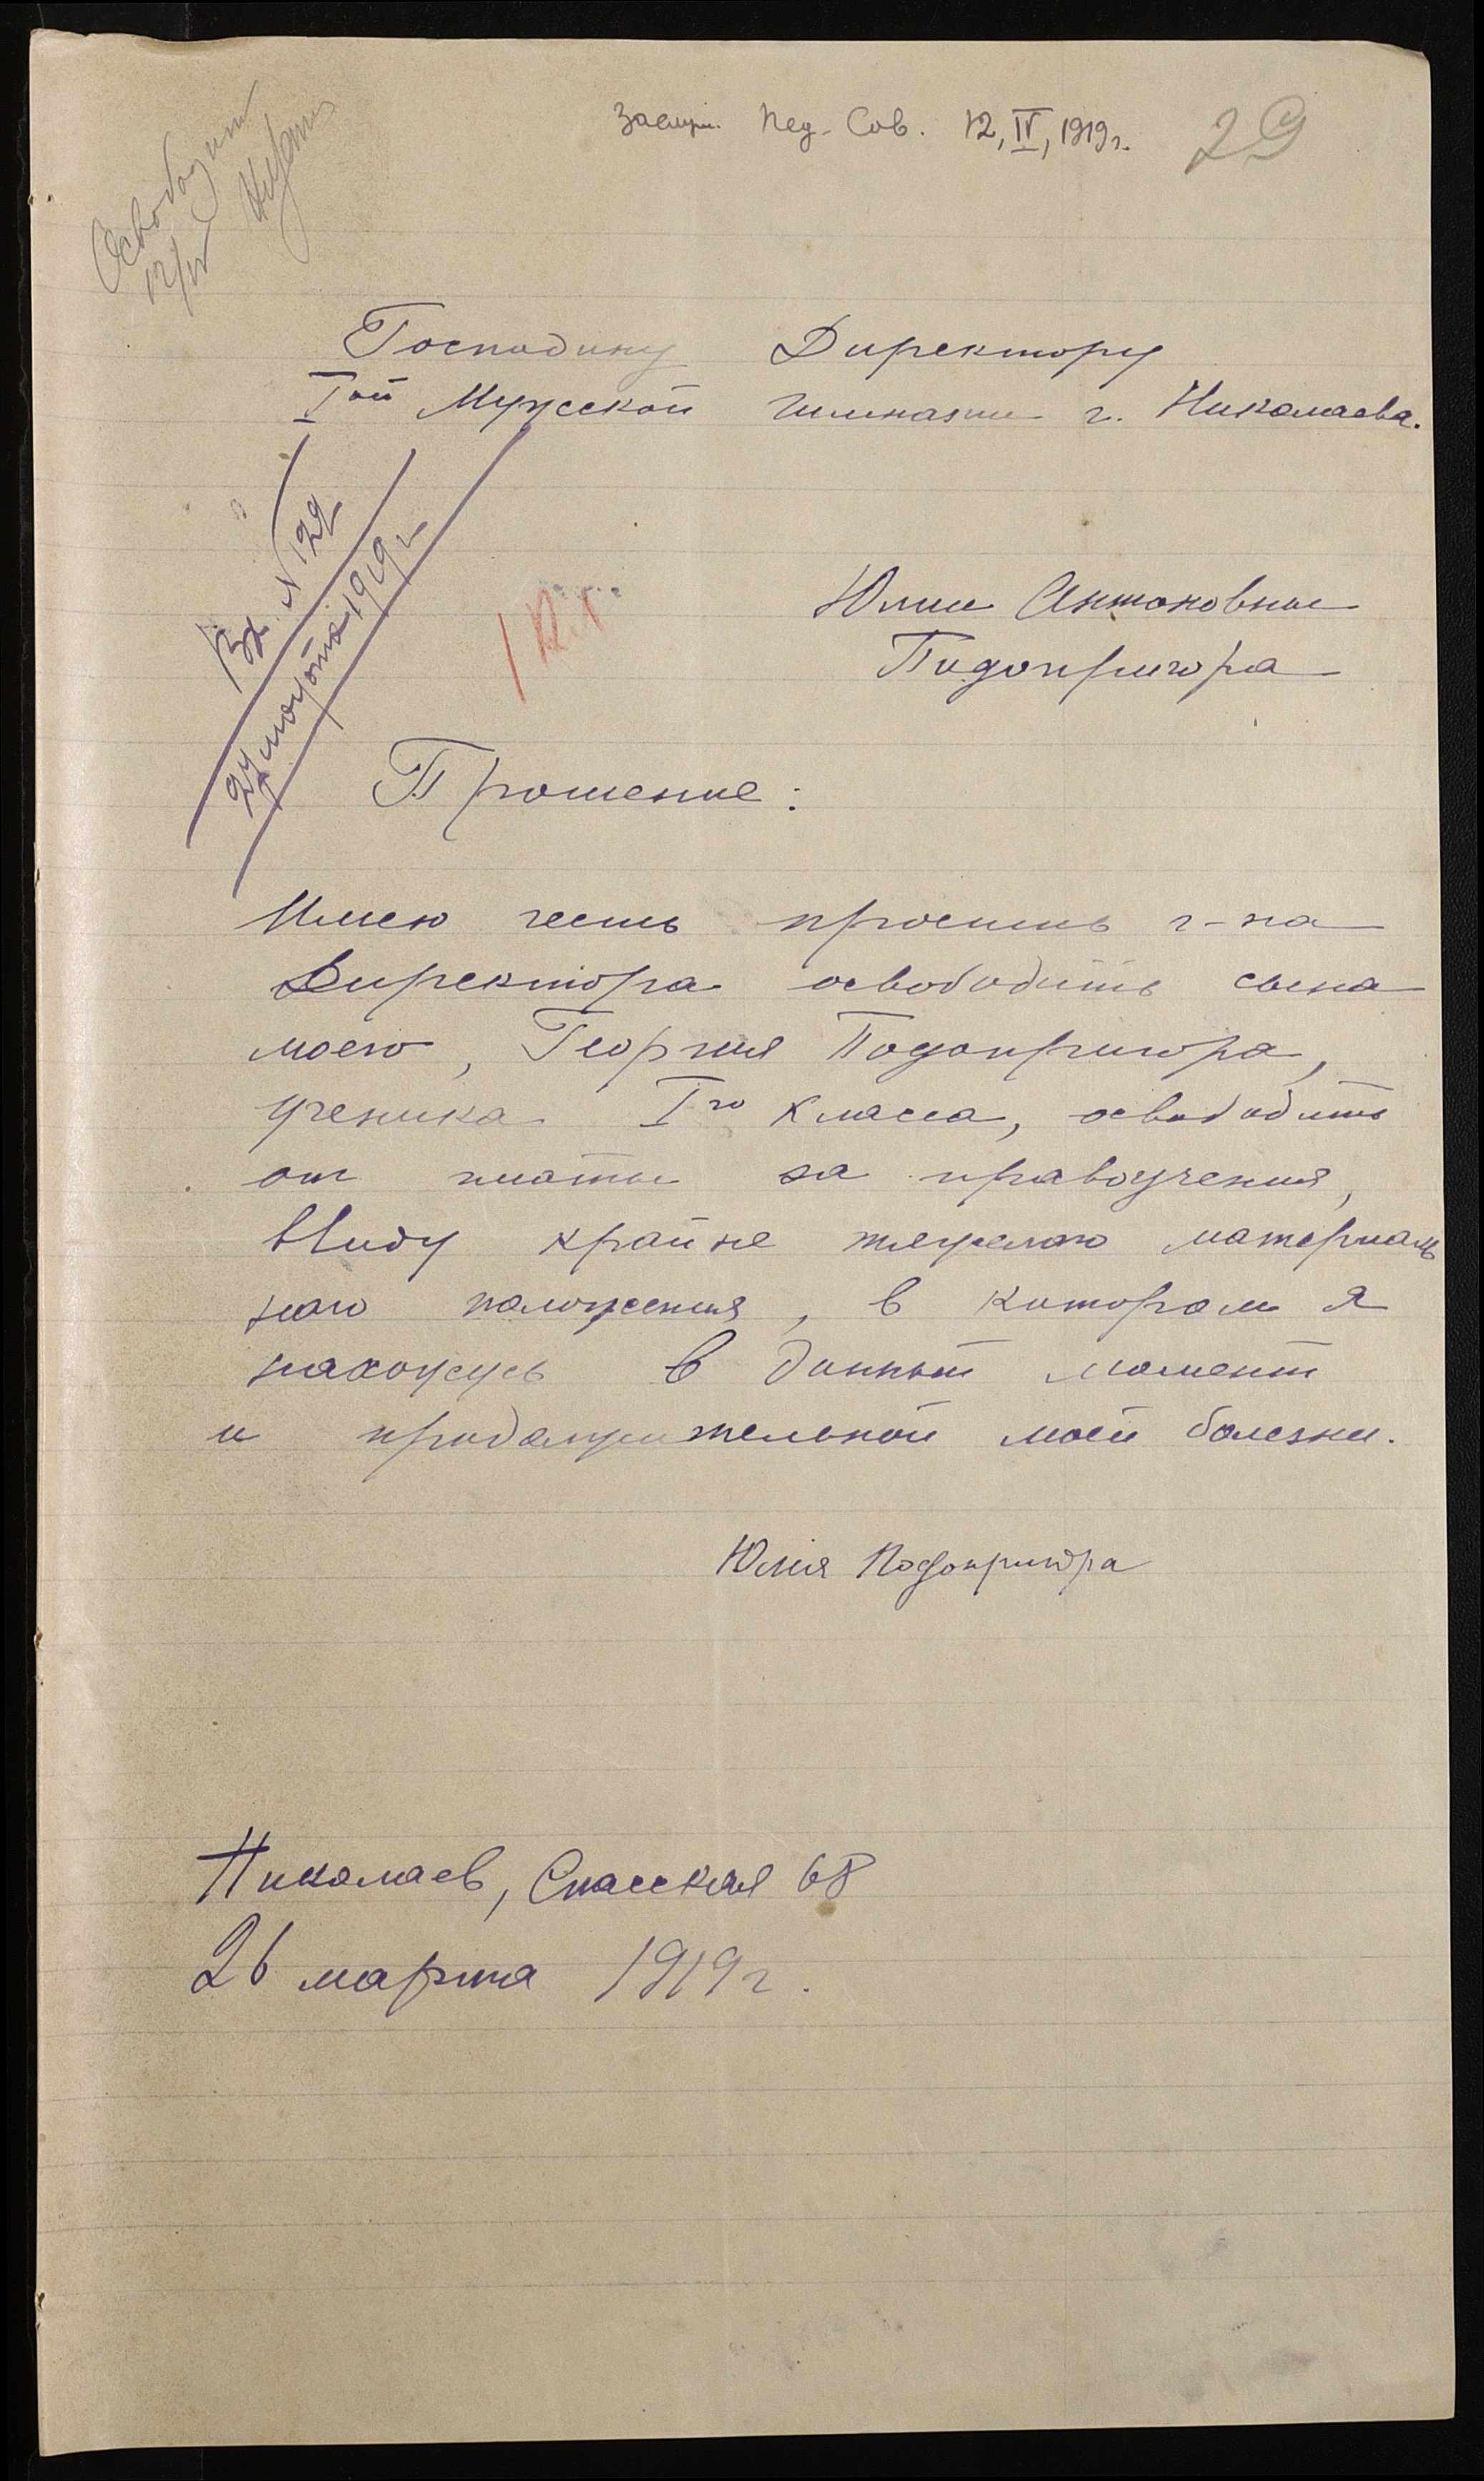 Заслуш. Пед. Сов. 12, IV, 1919 г.
29
Освободить
12/IV
Господину Директору
Iой Мужской Гимназии г. Николаева.
Вх. N 129
27 марта 1919 г
1 кл.
Юлии Антоновны
Подопригора
Прошение:
Имею честь просить г-на
Директора освободить сына
моего, Георгия Подопригора,
ученика Iго класса, освободить
от платы за правоучения,
ввиду крайне тяжелого материаль
ного положения, в котором я
нахожусь в данный момент
и продолжительной моей болезни.
Юлия Подопригора
Николаев, Спасская 68
26 марта 1919 г.